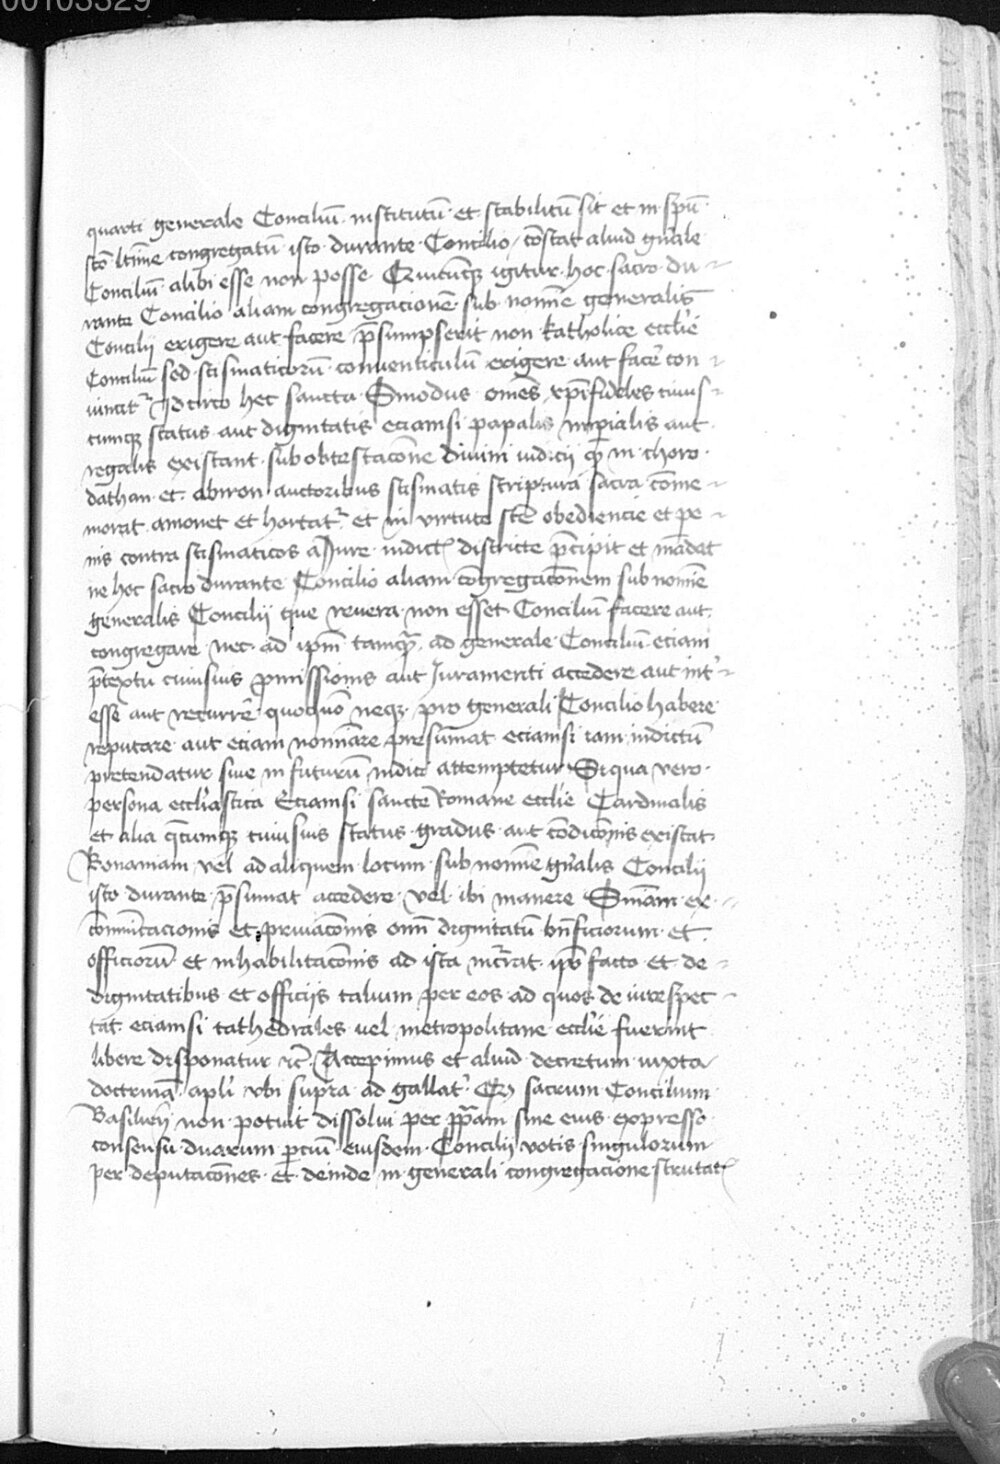 00103329
quarti generale Conciliū institutū et stabilitū sit et in spū
scō ltime congregatū isto durante Concilio cōstat aliud gn̄ale
Conciliū alibi esse non posse Quicūq; igitur hoc sacro du
rante Concilio aliam congregacionē sub nomīe generalis
Concilii erigere aut facere p̄sumpserit non katholice eccl'ie
Conciliū sed scismaticorū conuenticulū erigere aut facē con
uincit᷑ Idcirco hec sancta Sinodus omēs xp̄ifideles cuius
cumq; status aut dignitatis eciamsi papalis imp̄ialis aut
regalis existant sub obtestacōne diuini iudicii q̄ in choro
dathan et abiron auctoribus scismatis scriptura sacra cōme
morat amonet et hortat᷑ et in virtute scē obediencie et pe
nis contra scismaticos a Jure indict' districte p̄cipit et mādat
ne hoc sacro durante Concilio aliam cōngregacōnem sub nomīe
generalis Concilii que reuera non esset Conciliū facere aut
congregare nec ad ip̄m tamq̄ ad generale Conciliū eciam
p̄textu cuiusuis p̄missionis aut Juramenti accedere aut int'
esse aut recurrē quoquō neq; pro generali Concilio habere
reputare aut eciam nomīare presumāt eciamsi iam indictū
pretendatur siue in futurū indici attemptetur Si qua vero
persona eccl'iastica Eciamsi sancte Romane ecclīe Cardinalis
et alia q̄cumq; cuiusuis status gradus aut cōdicōnis existat
Bonaniam vel ad aliquem locum sub nomīe gn̄alis Concilii
isto durante p̄sumat accedere vel ibi manere Snīam ex
cōmunicacionis et priuacōnis omī dignitatū bn̄ficiorum et
officiorū et inhabilitacōnis ad ista incūrat ip̄o facto et de
dignitatibus et officiis talium per eos ad quos de iure spec
tat eciamsi cathedrales uel metropolitane eccl'ie fuerint
libere disponatur ⁊c̄ Accepimus et aliud decretum iuxta
doctrinā apl'i vbi supra ad gallat' Qz sacrum Concilium
Basilieñ non potuit dissolui per pp̄am sine eius expresso
consensu duarum p̄ciū eiusdem Concilii votis singulorum
per deputacōnes et deinde in generali congregacione scrutat'